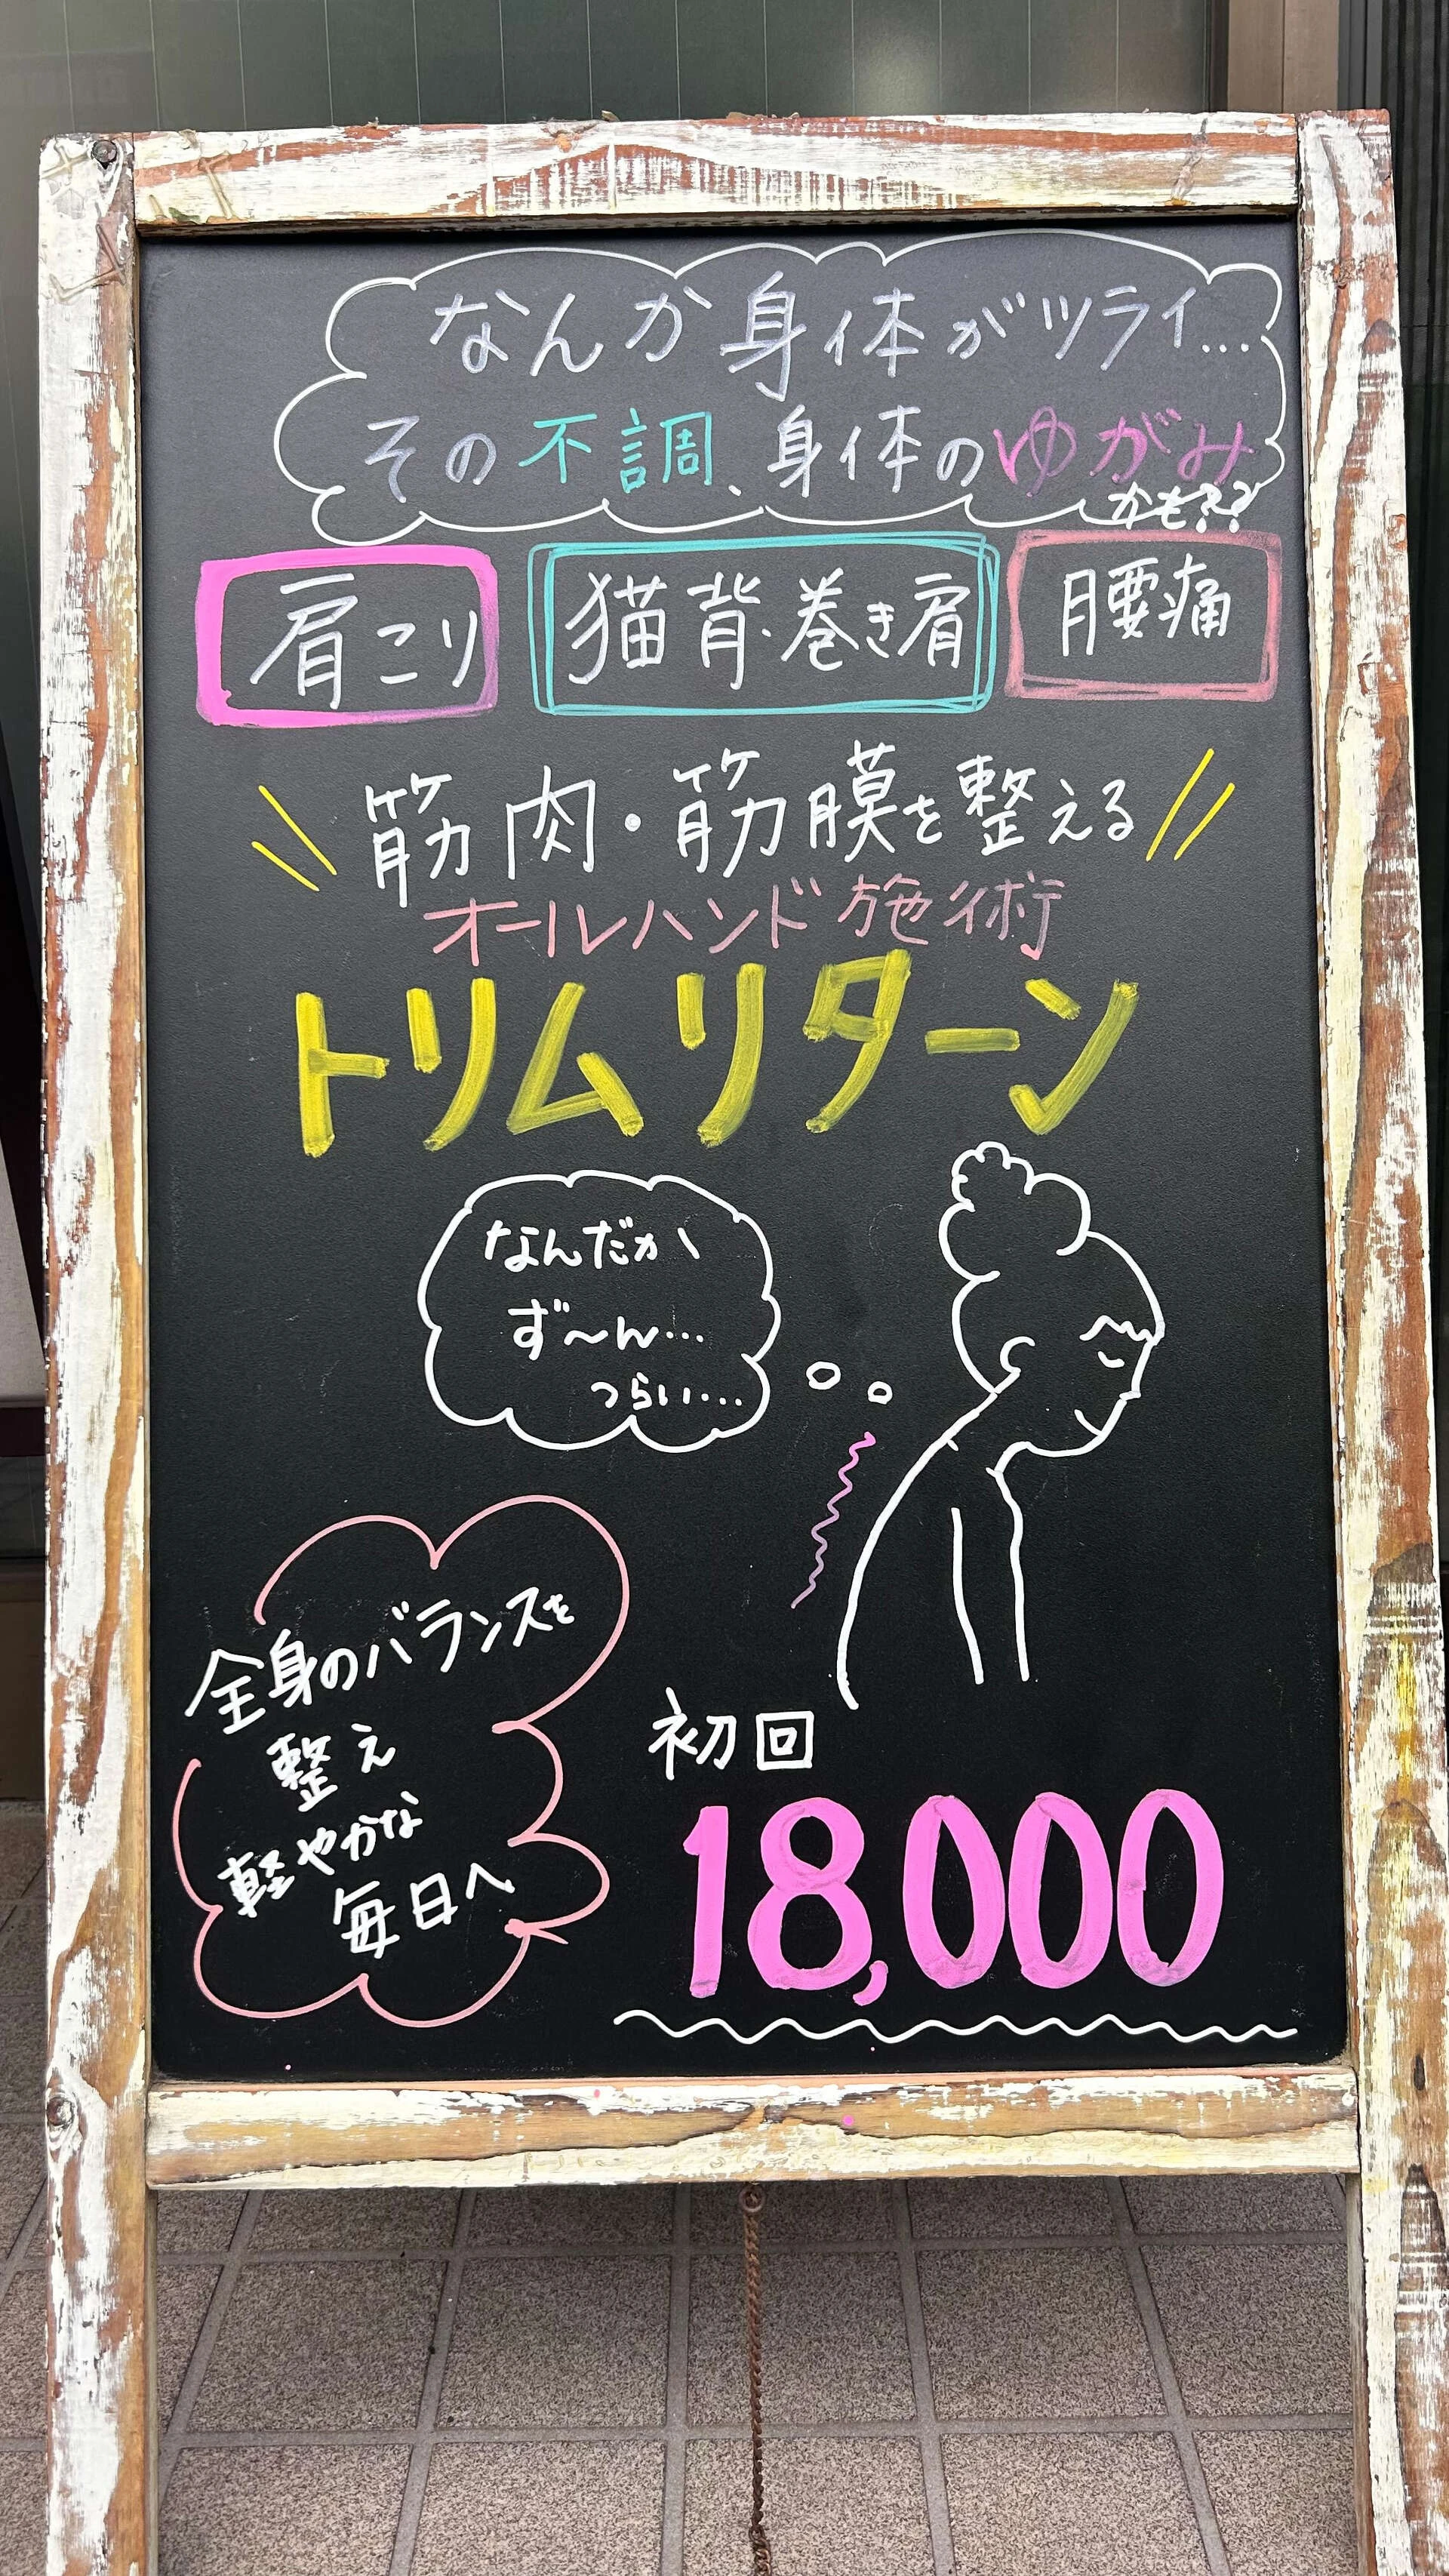 なんか身体がツライ...
その不調、身体のゆがみ
かも??
肩こり
猫背・巻き肩
腰痛
筋肉・筋膜を整える
オールハンド施術
トリムリターン
なんだか
ず〜ん...
つらい....
全身のバランスを
整え
軽やかな
毎日へ
初回
18,000